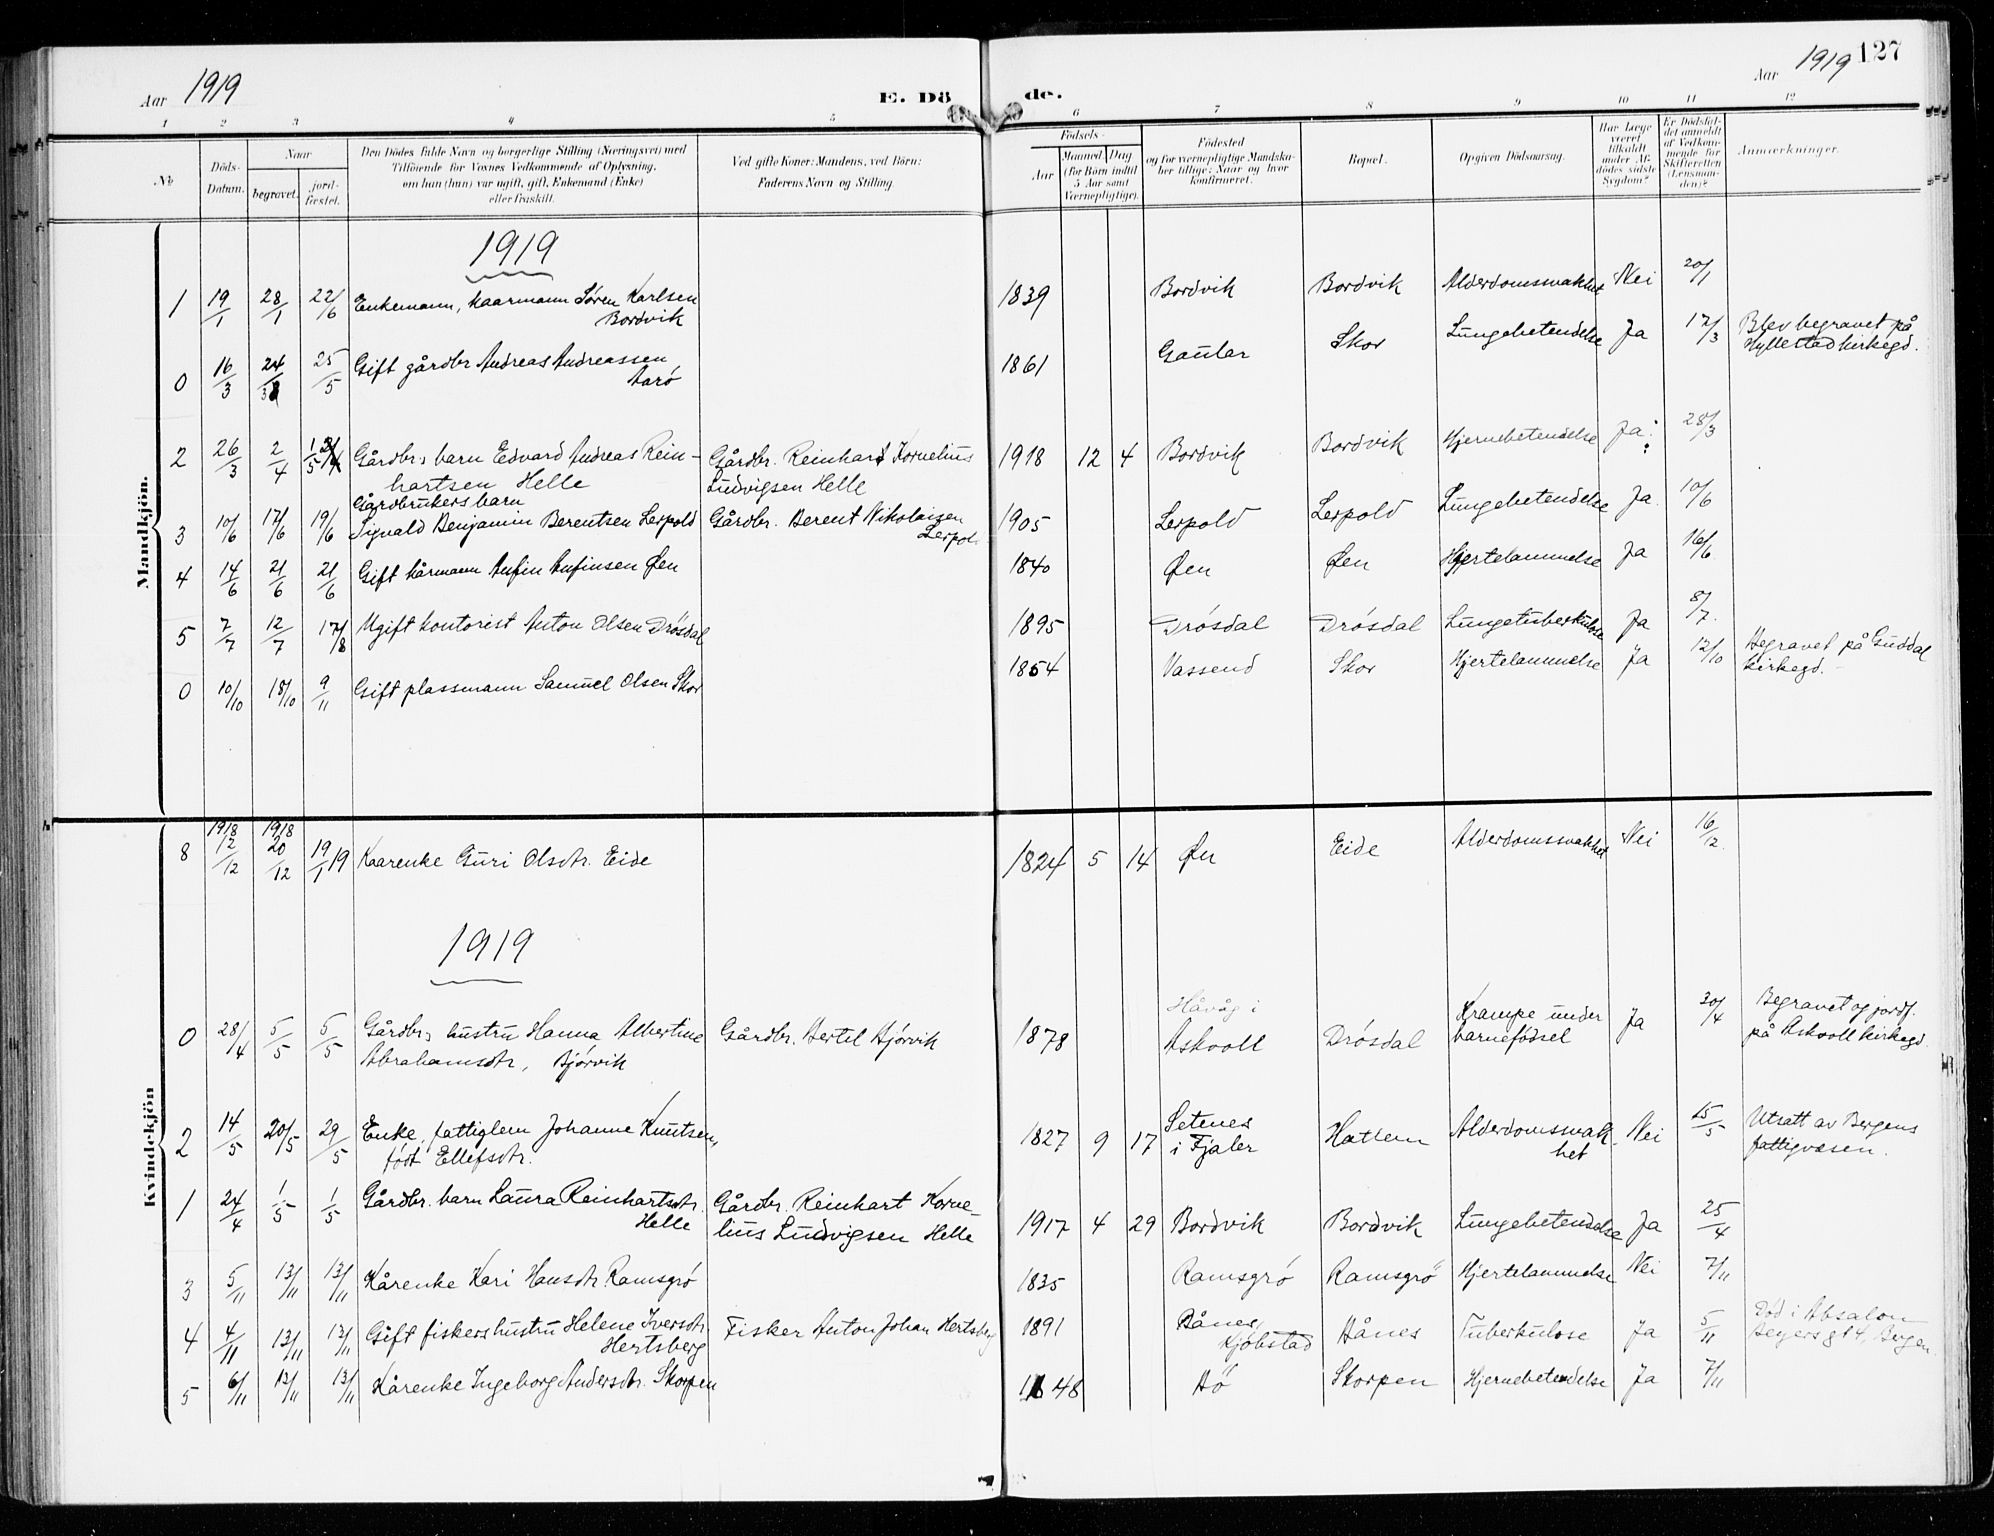 Aar 1919
E. Dö
de.
Aar 1919
127
1 2 3 4 5 6 7 8 9 10 11 12
No
Döds-
Datum.
Naar
begravet.
jord-
fæstet.
Den Dödes fulde Navn og borgerlige Stilling (Næringsvei) med
Tilföiende for Voxnes Vedkommende af Oplysning,
om han (hun) var ugift, gift, Enkemand (Enke)
eller fraskilt.
Ved gifte Koner: Mandens, ved Börn:
Faderens Navn og Stilling.
Födsels-
Aar
Maaned Dag
(for Börn indtil
5 Aar samt
Værnepligtige).
Födested
og for værnepligtige Mandska-
ber tillige: Naar og hvor
konfirmeret.
Bopæl.
Opgiven Dödsaarsag.
Har Læge
været
tilkaldt
under Af-
dödes sidste
Sygdom?
Er Dödsfal-
det anmeldt
af Vedkom-
mende for
Skifteretten
(Lensman-
den)?
Anmærkninger.
Mandkjön.
1919
1 19/1 28/1 22/6 Enkemann, kaarmann Søren Karlsen
Bordvik
1839 Bordvik Bordvik Alderdomssvakhet Nei 20/1
0 16/3 24/3 25/5 Gift gårdbr Andreas Andreassen
Aarö
1861 Gaular Skor Lungebetendelse Ja 17/3 Blev begravet på
Hyllestad kirkegd.
2 26/3 2/4 1/5 Gårdbr,s barn Edvard Andreas Rein-
hartsen Helle
Gårdbr. Reinhard Kornelius
Ludvigsen Helle
1918 12 4 Bordvik Bordvik Hjernebetendelse Ja 28/3
Gårdbrukers barn
3 10/6 17/6 19/6 Sigvald Benjamin Berentsen Leepold Gårdbr. Berent Nikolaisen
1905 Leepold Leepold Lungebetendelse Ja. 10/6
4 14/6 21/6 21/6 Gift kårmann Anfin Anfinsen Øen
1840 Øen Øen Hjertelammelse Ja 16/6
5 7/7 12/7 17/8 Ugift kontorist Anton Olsen Drösdal
1895 Drösdal Drösdal Lungetuberkulose Ja 8/7.
0 10/10 18/10 9/11 Gift plassmann Samuel Olsen Skor
1854 Vassend Skor Hjertelammelse Ja 12/10 Begravet på Guddal
kirkegd.
Kvindekjön
1918 1918
8 12/12 20/12 19/1 19 Kaarenke Guri Olsdtr. Eide
1824 5 14 Øen Eide Alderdomssvakhet Nei 16/12.
1919
0 28/4 5/5 5/5 Gårdbr,s hustru Hanna Albertine
Abrahamsdtr, Bjørvik
Gårdbr. Bertel Bjørvik
1878 Håvåg i
Askvoll Drösdal Krampe under
barnefödsel Ja 30/4 Begravet og jordf.
på Askvoll kirkegd.
2 14/5 20/5 29/5 Enke, fattiglem Johanne Knutsen,
født Ellefsdtr.
1827 9 17 Setenes
i Fjaler Hatlem Alderdomssvak-
het Nei 15/5 Utsatt av Bergens
fattigvæsen.
1 24/4 1/5 1/5 Gårdbr. barn Laura Reinhartsdtr.
Helle
Gårdbr. Reinhart Korne-
lius Ludvigsen Helle
1917 4 29 Bordvik Bordvik Lungebetendelse Ja 25/4
3 5/11 13/11 13/11 Kårenke Kari Hansdtr. Ramsgrö
1835 Ramsgrö Ramsgrö Hjertelammelse Nei 7/11
4 4/11 13/11 13/11 Gift fiskers hustru Helene Iversdtr.
Hertsberg
Fisker Anton Johan Hertsberg
1891 Bånes,
Kjöbstad Hånes Tuberkulose Ja 5/11 Död i Absalon
Beyers gt 4, Bergen.
5 6/11 13/11 13/11 Kårenke Ingeborg Andersdtr. Skorpen
1848 Bö Skorpen Hjernebetendelse Ja 7/11